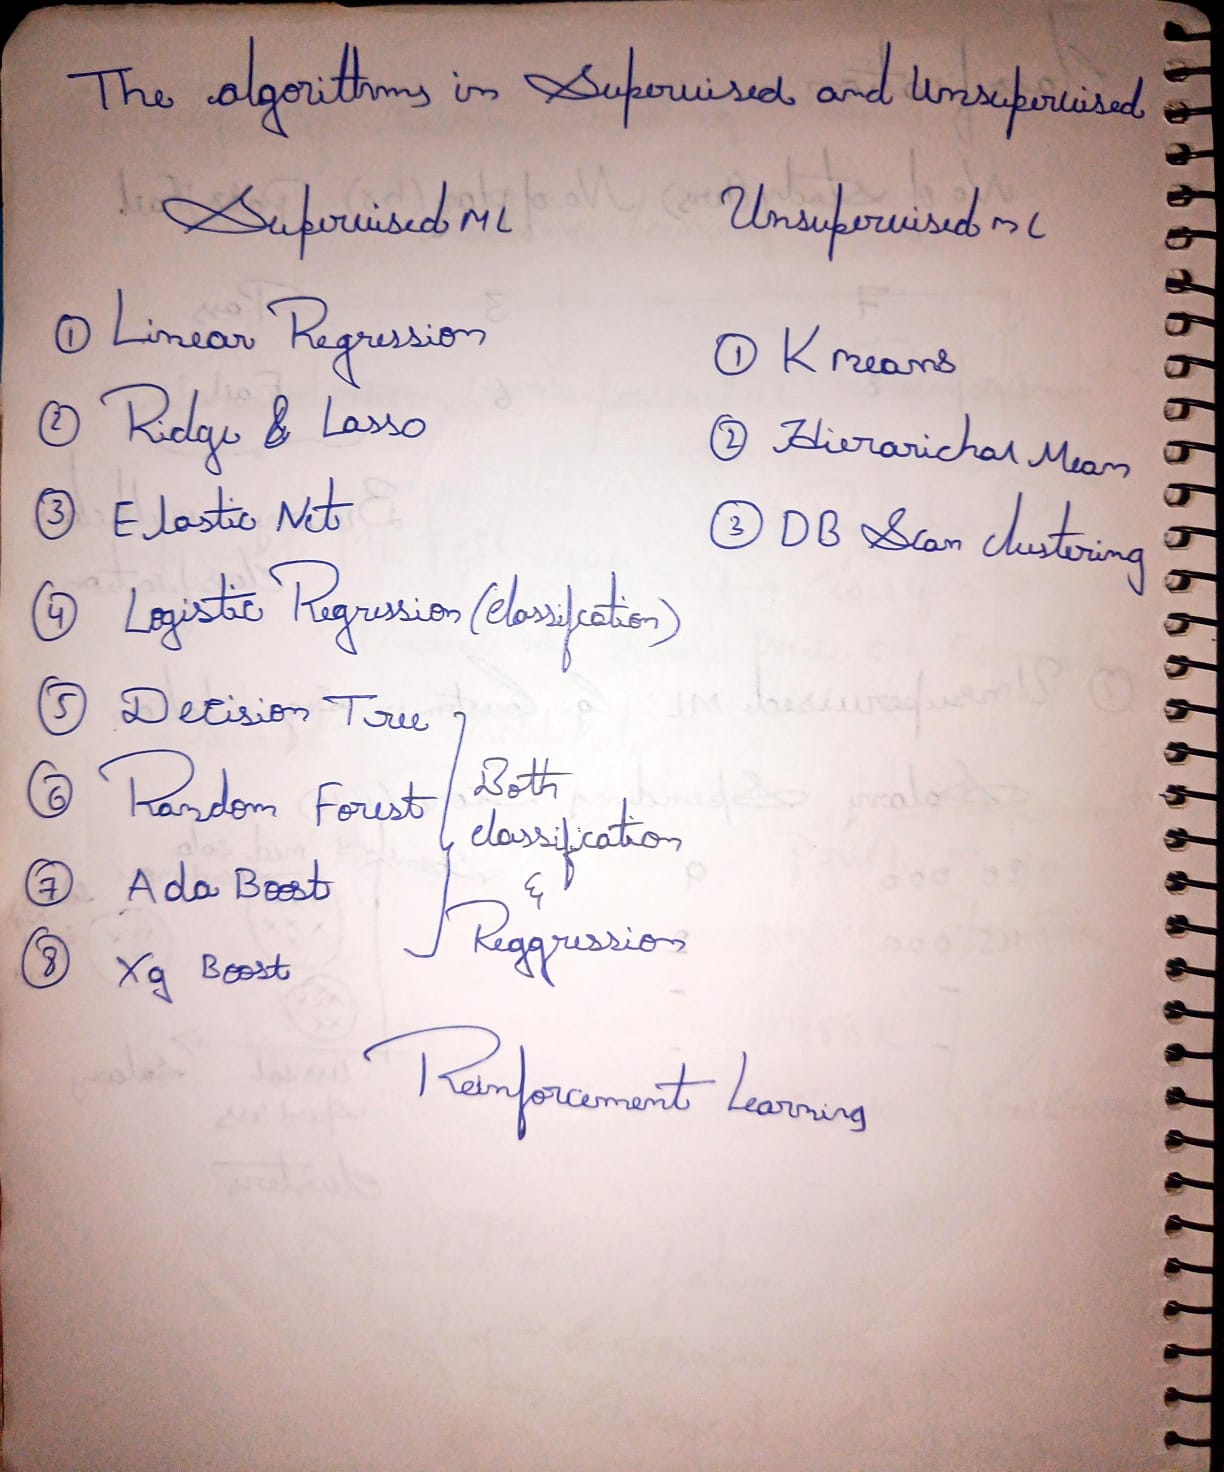 The algorithms in Supervised and Unsupervised
Supervised ML
Unsupervised ML
① Linear Regression
② Ridge & Lasso
③ Elastic Net
④ Logistic Regression (classification)
⑤ Decision Tree
⑥ Random Forest
⑦ Ada Boost
⑧ Xg Boost
Both
classification
&
Reggression
① K means
② Hierarichal Mean
③ DB Scan clustering
Reinforcement Learning